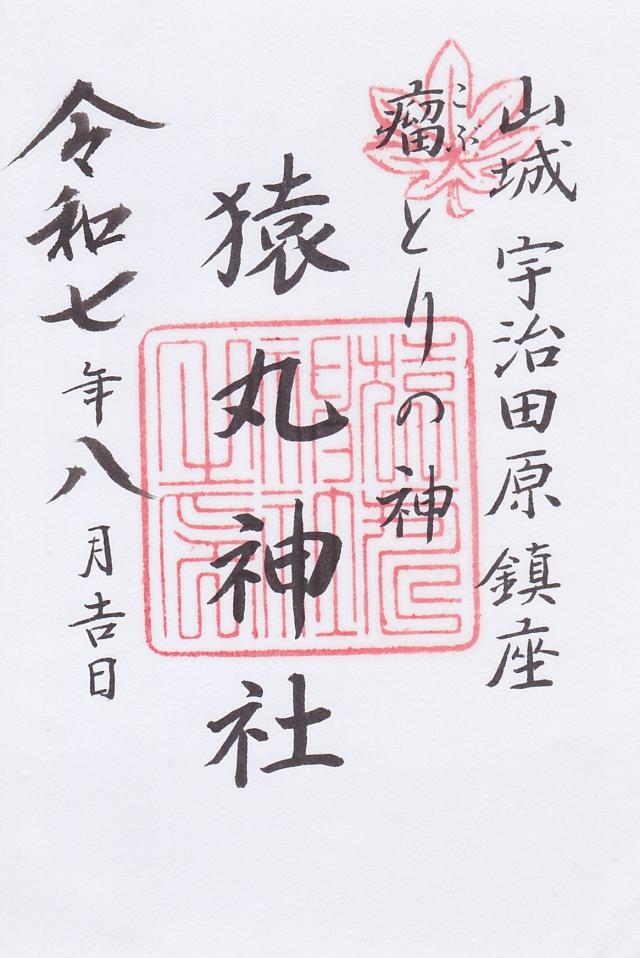 山城 宇治田原鎮座
瘤とりの神
こぶ
猿丸神社
令和七年八月吉日